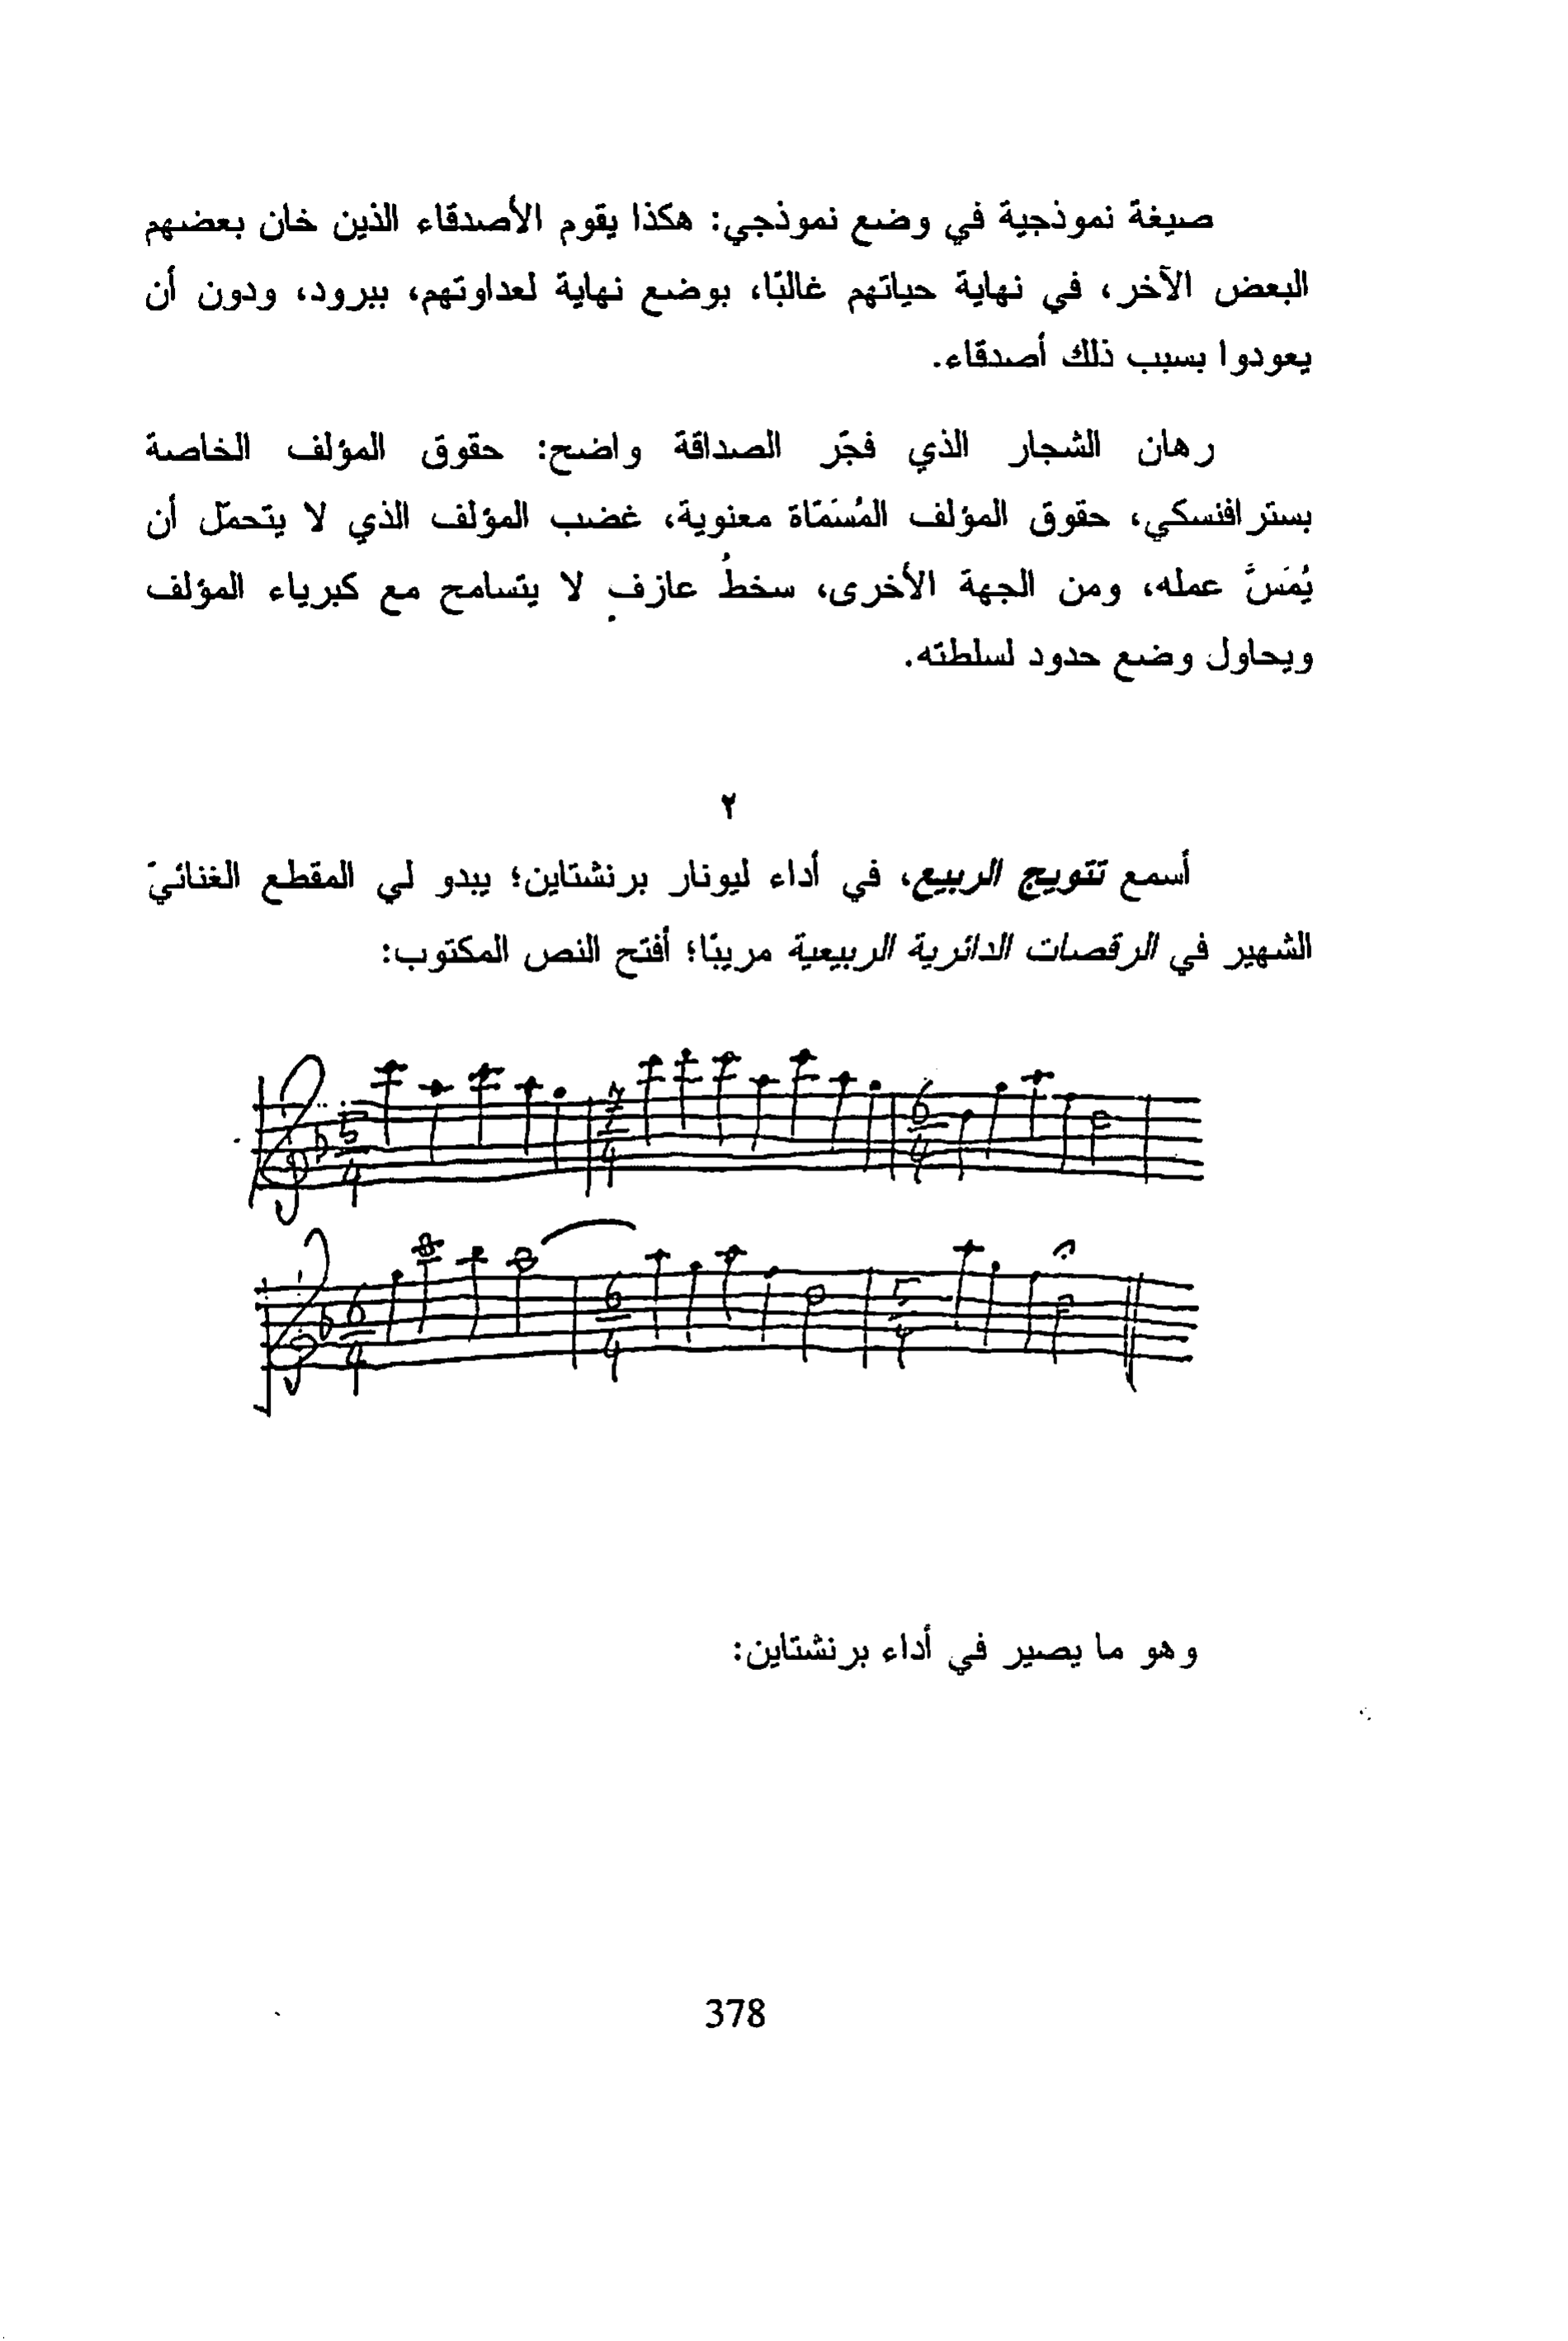 صيغة نموذجية في وضع نموذجي: هكذا يقوم الأصدقاء الذين خان بعضهم
البعض الآخر، في نهاية حياتهم غالبًا، بوضع نهاية لعداوتهم، ببرود، ودون أن
يعودوا بسبب ذلك أصدقاء.
رهان الشجار الذي فجّر الصداقة واضح: حقوق المؤلف الخاصة
بسترافنسكي، حقوق المؤلف المُسَمّاة معنوية، غضب المؤلف الذي لا يتحمّل أن
يُمَسَّ عمله، ومن الجهة الأخرى، سخطُ عازفٍ لا يتسامح مع كبرياء المؤلف
ويحاول وضع حدود لسلطته.
٢
أسمع تتويج الربيع، في أداء ليونار برنشتاين؛ يبدو لي المقطع الغنائيّ
الشهير في الرقصات الدائرية الربيعية مريبًا؛ أفتح النص المكتوب:
5/4 7/4 6/4
6/4 6/4 5/4
وهو ما يصير في أداء برنشتاين:
378